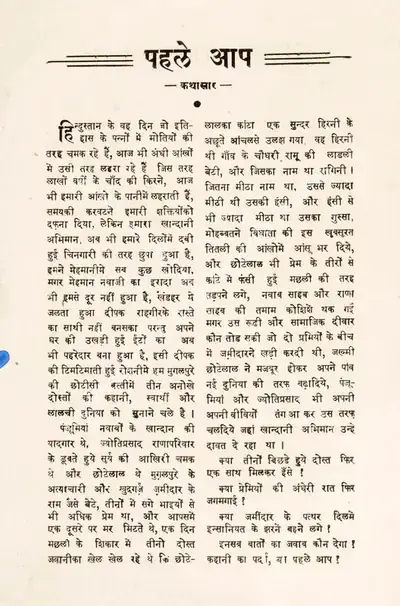 पहले आप
— कथासार —
हिन्दुस्तान के वह दिन जो इति-
हास के पन्नों में मोतियों की
तरह चमक रहे हैं, आज भी अंधी आंखों
में उसी तरह लहरा रहे हैं जिस तरह
लाखों वर्षों के चाँद की किरने, आज
भी हमारी आंखो के पानीमें लहराती हैं,
समयकी करवटने हमारी शक्तियोंको
दफना दिया, लेकिन हमारा खान्दानी
अभिमान, अब भी हमारे दिलोंमें दबी
हुई चिनगारी की तरह छुपा हुआ है,
हमने मेहमानीमें सब कुछ खोदिया,
मगर मेहमान नवाजी का इरादा अब
भी हमसे दूर नहीं हुआ है, खंडहर में
जलता हुआ दीपक राहगिरके रास्ते
का साथी नहीं बनसका परन्तु अपने
घर की उखड़ी हुई ईटों का अब
भी पहरेदार बना हुआ है, इसी दीपक
की टिमटिमाती हुई रोशनीमें हम मुगलपुरे
की छोटीसी बस्तीमें तीन अनोखे
दोस्तों की कहानी, स्वार्थी और
लालची दुनिया को सुनाने चले है ।
पंजूमियां नवाबों के खान्दान की
यादगार थे, ज्योतिप्रसाद राणापरिवार
के डूबते हुये सूर्य की आखिरी चमक
थे और छोटेलाल थे मुगलपुरे के
अत्याचारी और खुदगर्ज जमींदार के
राम जैसे बेटे, तीनों में सगे भाइयों से
भी अधिक प्रेम था, और आपसमें
एक दूसरे पर मर मिटते थे, एक दिन
मछली के शिकार में तीनों दोस्त
जवानीका खेल खेल रहे थे कि छोटे-
लालका कांटा एक सुन्दर हिरनी के
अछूते आंचलसे उलझ गया, वह हिरनी
थी गाँव के चौधरी रामू की लाडली
बेटी, और जिसका नाम था रागिनी ।
जितना मीठा नाम था, उससे ज्यादा
मीठी थी उसकी हंसी, और हंसी से
भी ज्यादा मीठा था उसका गुस्सा,
मोहब्बतने विधाता की इस खूबसूरत
तितली की आंखोंमें आंसू भर दिये,
और छोटेलाल भी प्रेम के तीरों से
कांटे में फंसी हुई मछली की तरह
तड़पने लगे, नवाब साहब और राणा
साहब की तमाम कोशिशें थक गई
मगर उस रूढी और सामाजिक दीवार
कौन तोड सकी जो दो प्रेमियों के बीच
में जमींदारने खड़ी करदी थी, जख्मी
छोटेलाल ने मजबूर होकर अपने पांव
नई दुनिया की तरफ बढादिये, पंजू-
मियां और ज्योतिप्रसाद भी अपनी
अपनी बीवियों तंग आ कर उस तरफ
चलदिये जहां खान्दानी अभिमान उन्हें
दावत दे रहा था ।
क्या तीनों बिछडे हुये दोस्त फिर
एक साथ मिलकर हँसे !
क्या प्रेमियों की अंधेरी रात फिर
जगमगाई !
क्या जमींदार के पत्थर दिलमें
इन्सानियत के झरने बहने लगे !
इनसब बातों का जवाब कौन देगा !
कहानी का पर्दा, या पहले आप !